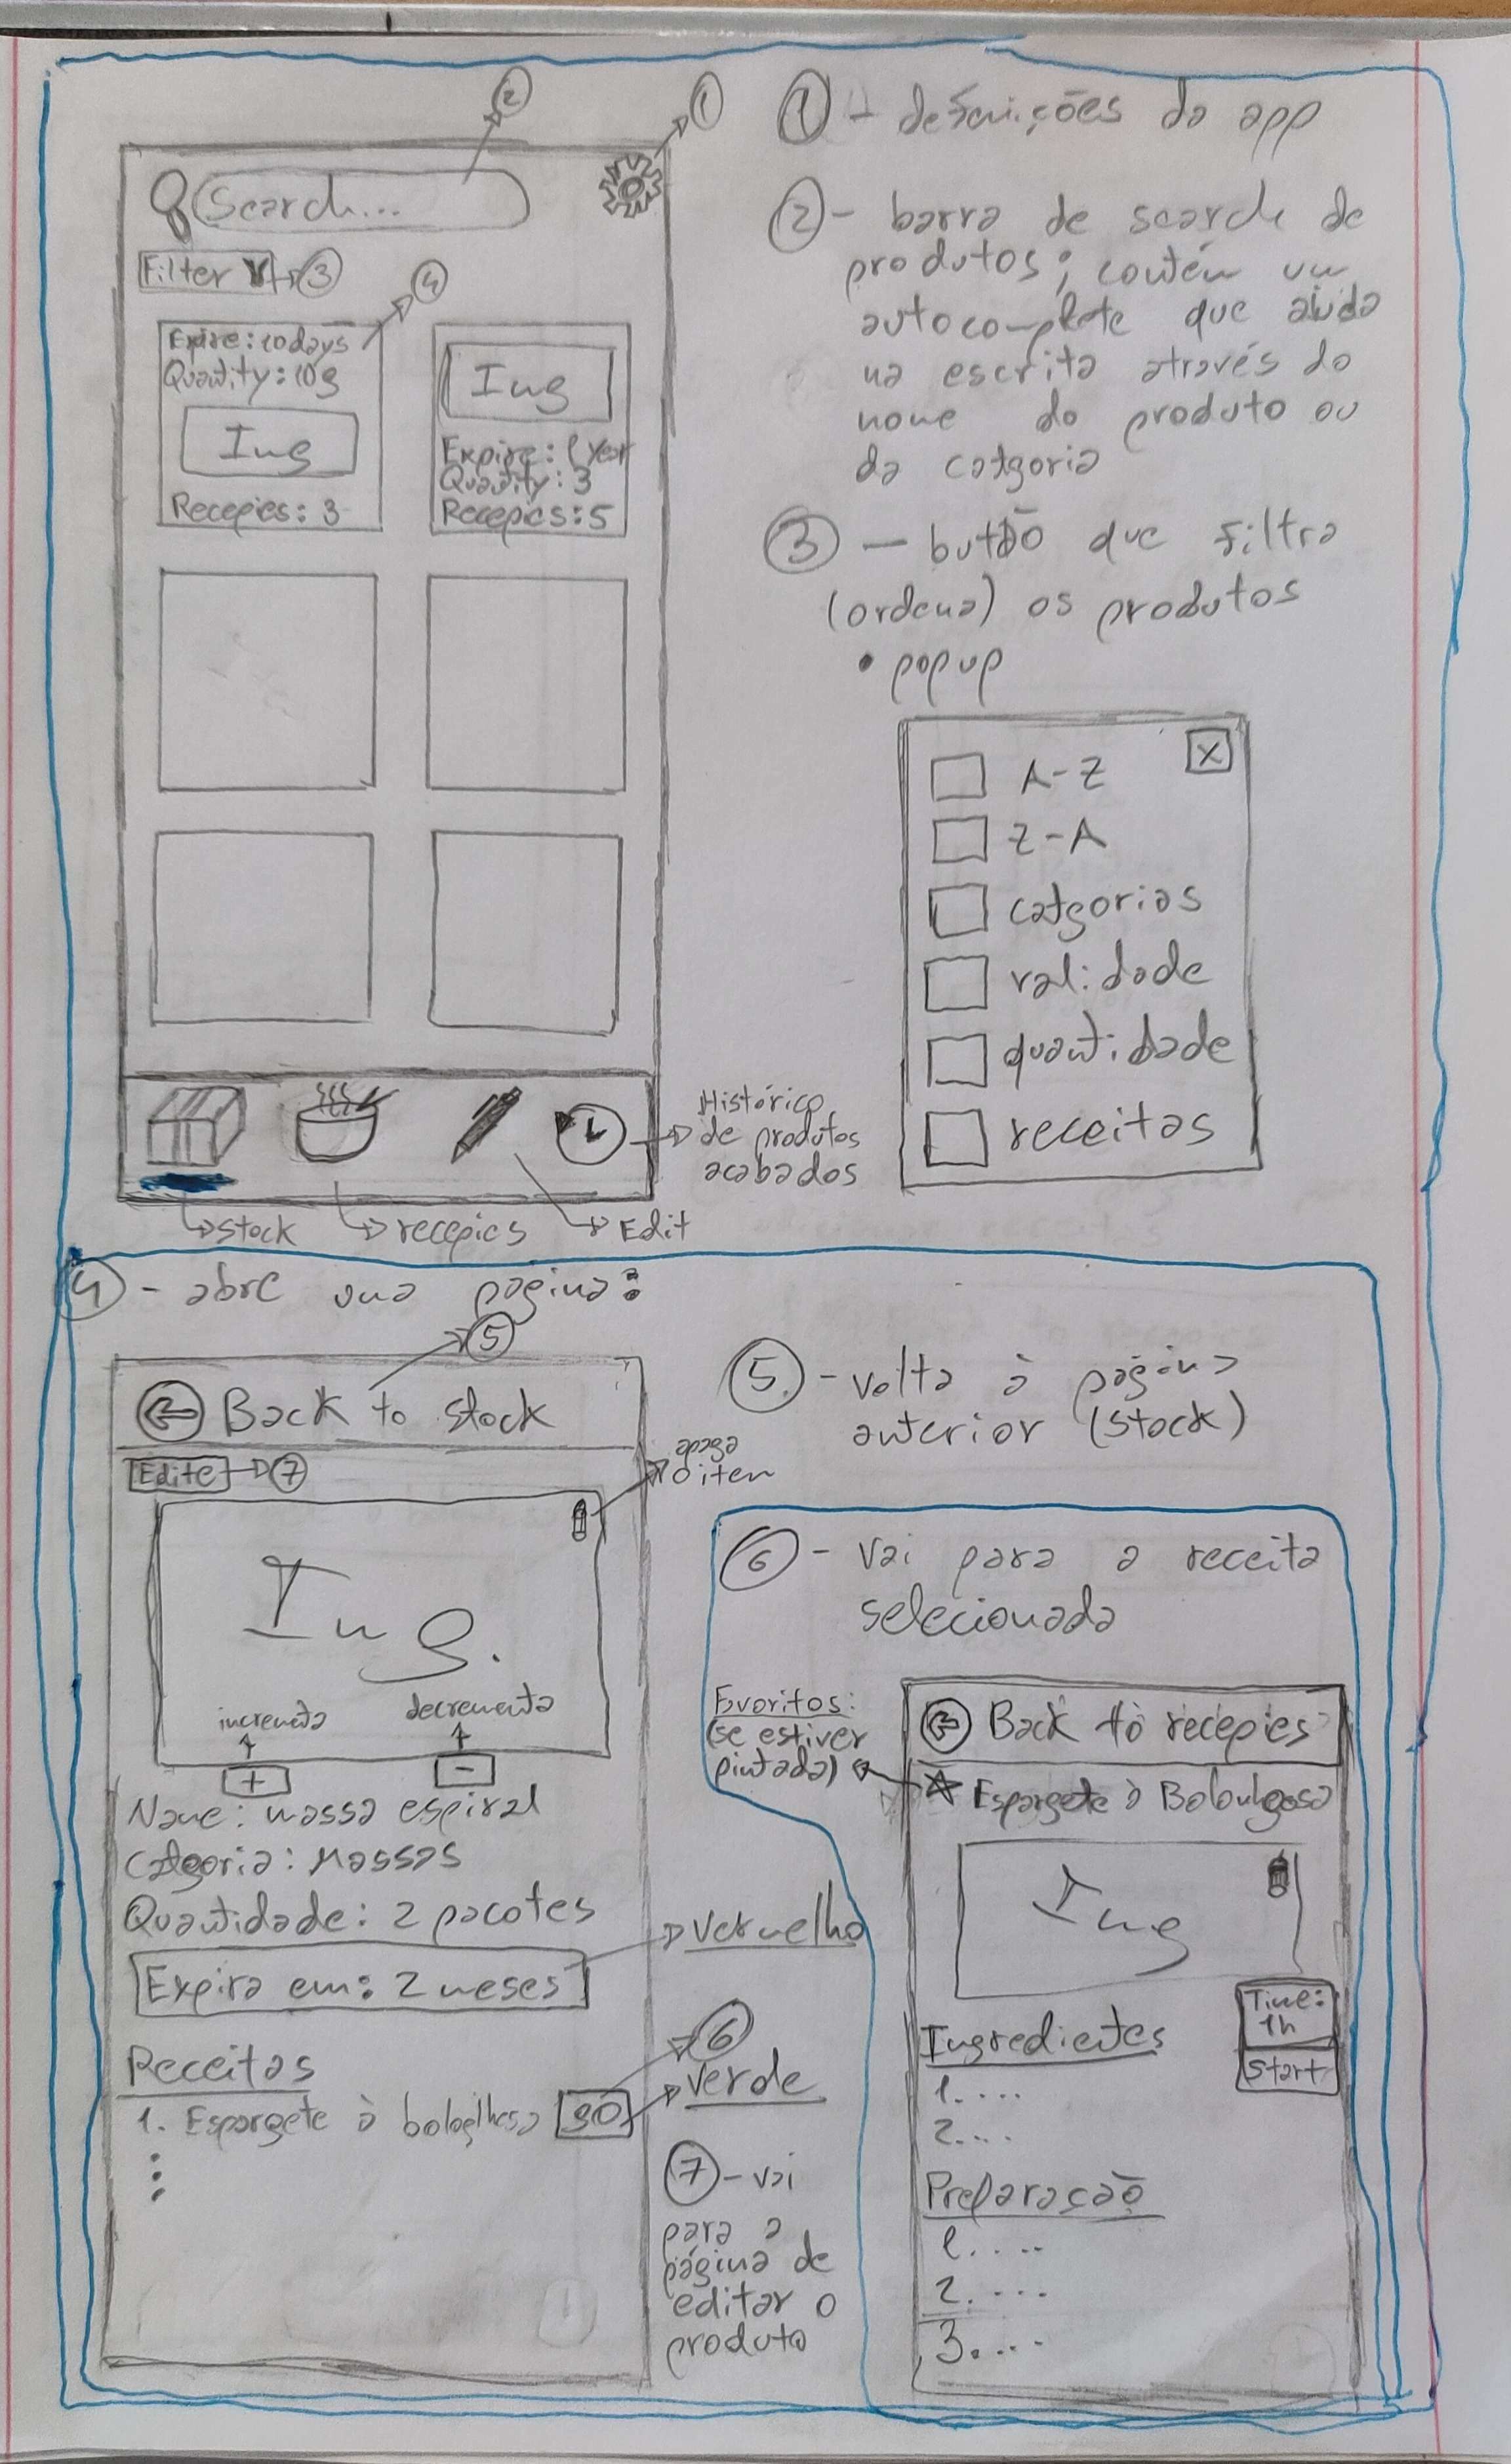 ② ①
Search...
Filter ③
④
Expire: 10 days
Quantity: 10g
Img
Recepies: 3
Img
Expire: 1 year
Quantity: 3
Recepies: 5
Histórico
de produtos
acabados
stock
recepies
Edit
① - definições da app
② - barra de search de
produtos; contém um
autocomplete que ajuda
na escrita através do
nome do produto ou
da catgoria
③ - butão que filtra
(ordena) os produtos
• popup
X
A-Z
Z-A
catgorias
validade
quantidade
receitas
④ - abre uma pagina:
⑤
Back to stock
Edite ⑦
apaga
o item
Img.
incrementa
decrementa
+
-
Name: massa espiral
Categoria: Massas
Quantidade: 2 pacotes
Expira em: 2 meses
vermelho
Receitas
1. Espargete à bologlhesa go
⑥
verde
⑤ - volta à página
anterior (stock)
⑥ - vai para a receita
selecionada
Favoritos:
(se estiver
pintada)
Back to recepies
Espargete à Bolonhgesa
Img
Time:
1h
Start
Ingredientes
1. ...
2. ...
Preparação
1. ...
2. ...
3. ...
⑦ - vai
para a
página de
editar o
produto